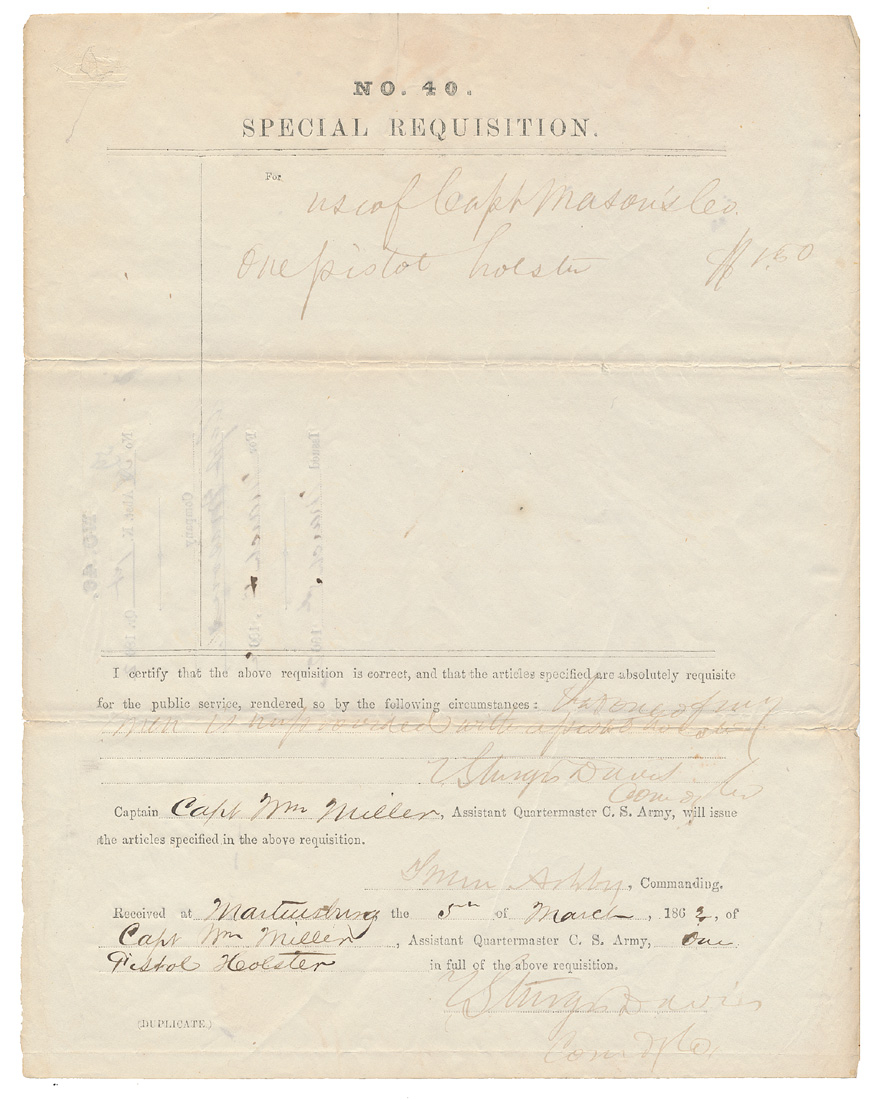 NO. 40.
SPECIAL REQUISITION.
For
use of Capt Mason's Co.
One pistol holster $1.50
I certify that the above requisition is correct, and that the articles specified are absolutely requisite
for the public service, rendered, so by the following circumstances: one of my
men is unprovided with a pistol holster
T Sturgis Davis
Com
Captain Capt Wm Miller, Assistant Quartermaster C. S. Army, will issue
the articles specified in the above requisition.
Ashby, Commanding.
Received at Martinsburg the 5th of March, 1862, of
Capt Wm Miller, Assistant Quartermaster C. S. Army, One
Pistol Holster in full of the above requisition.
T Sturgis Davis
Com Co
(DUPLICATE.)
NO. 40.
No Abst. K.
Company
For March
Issued March